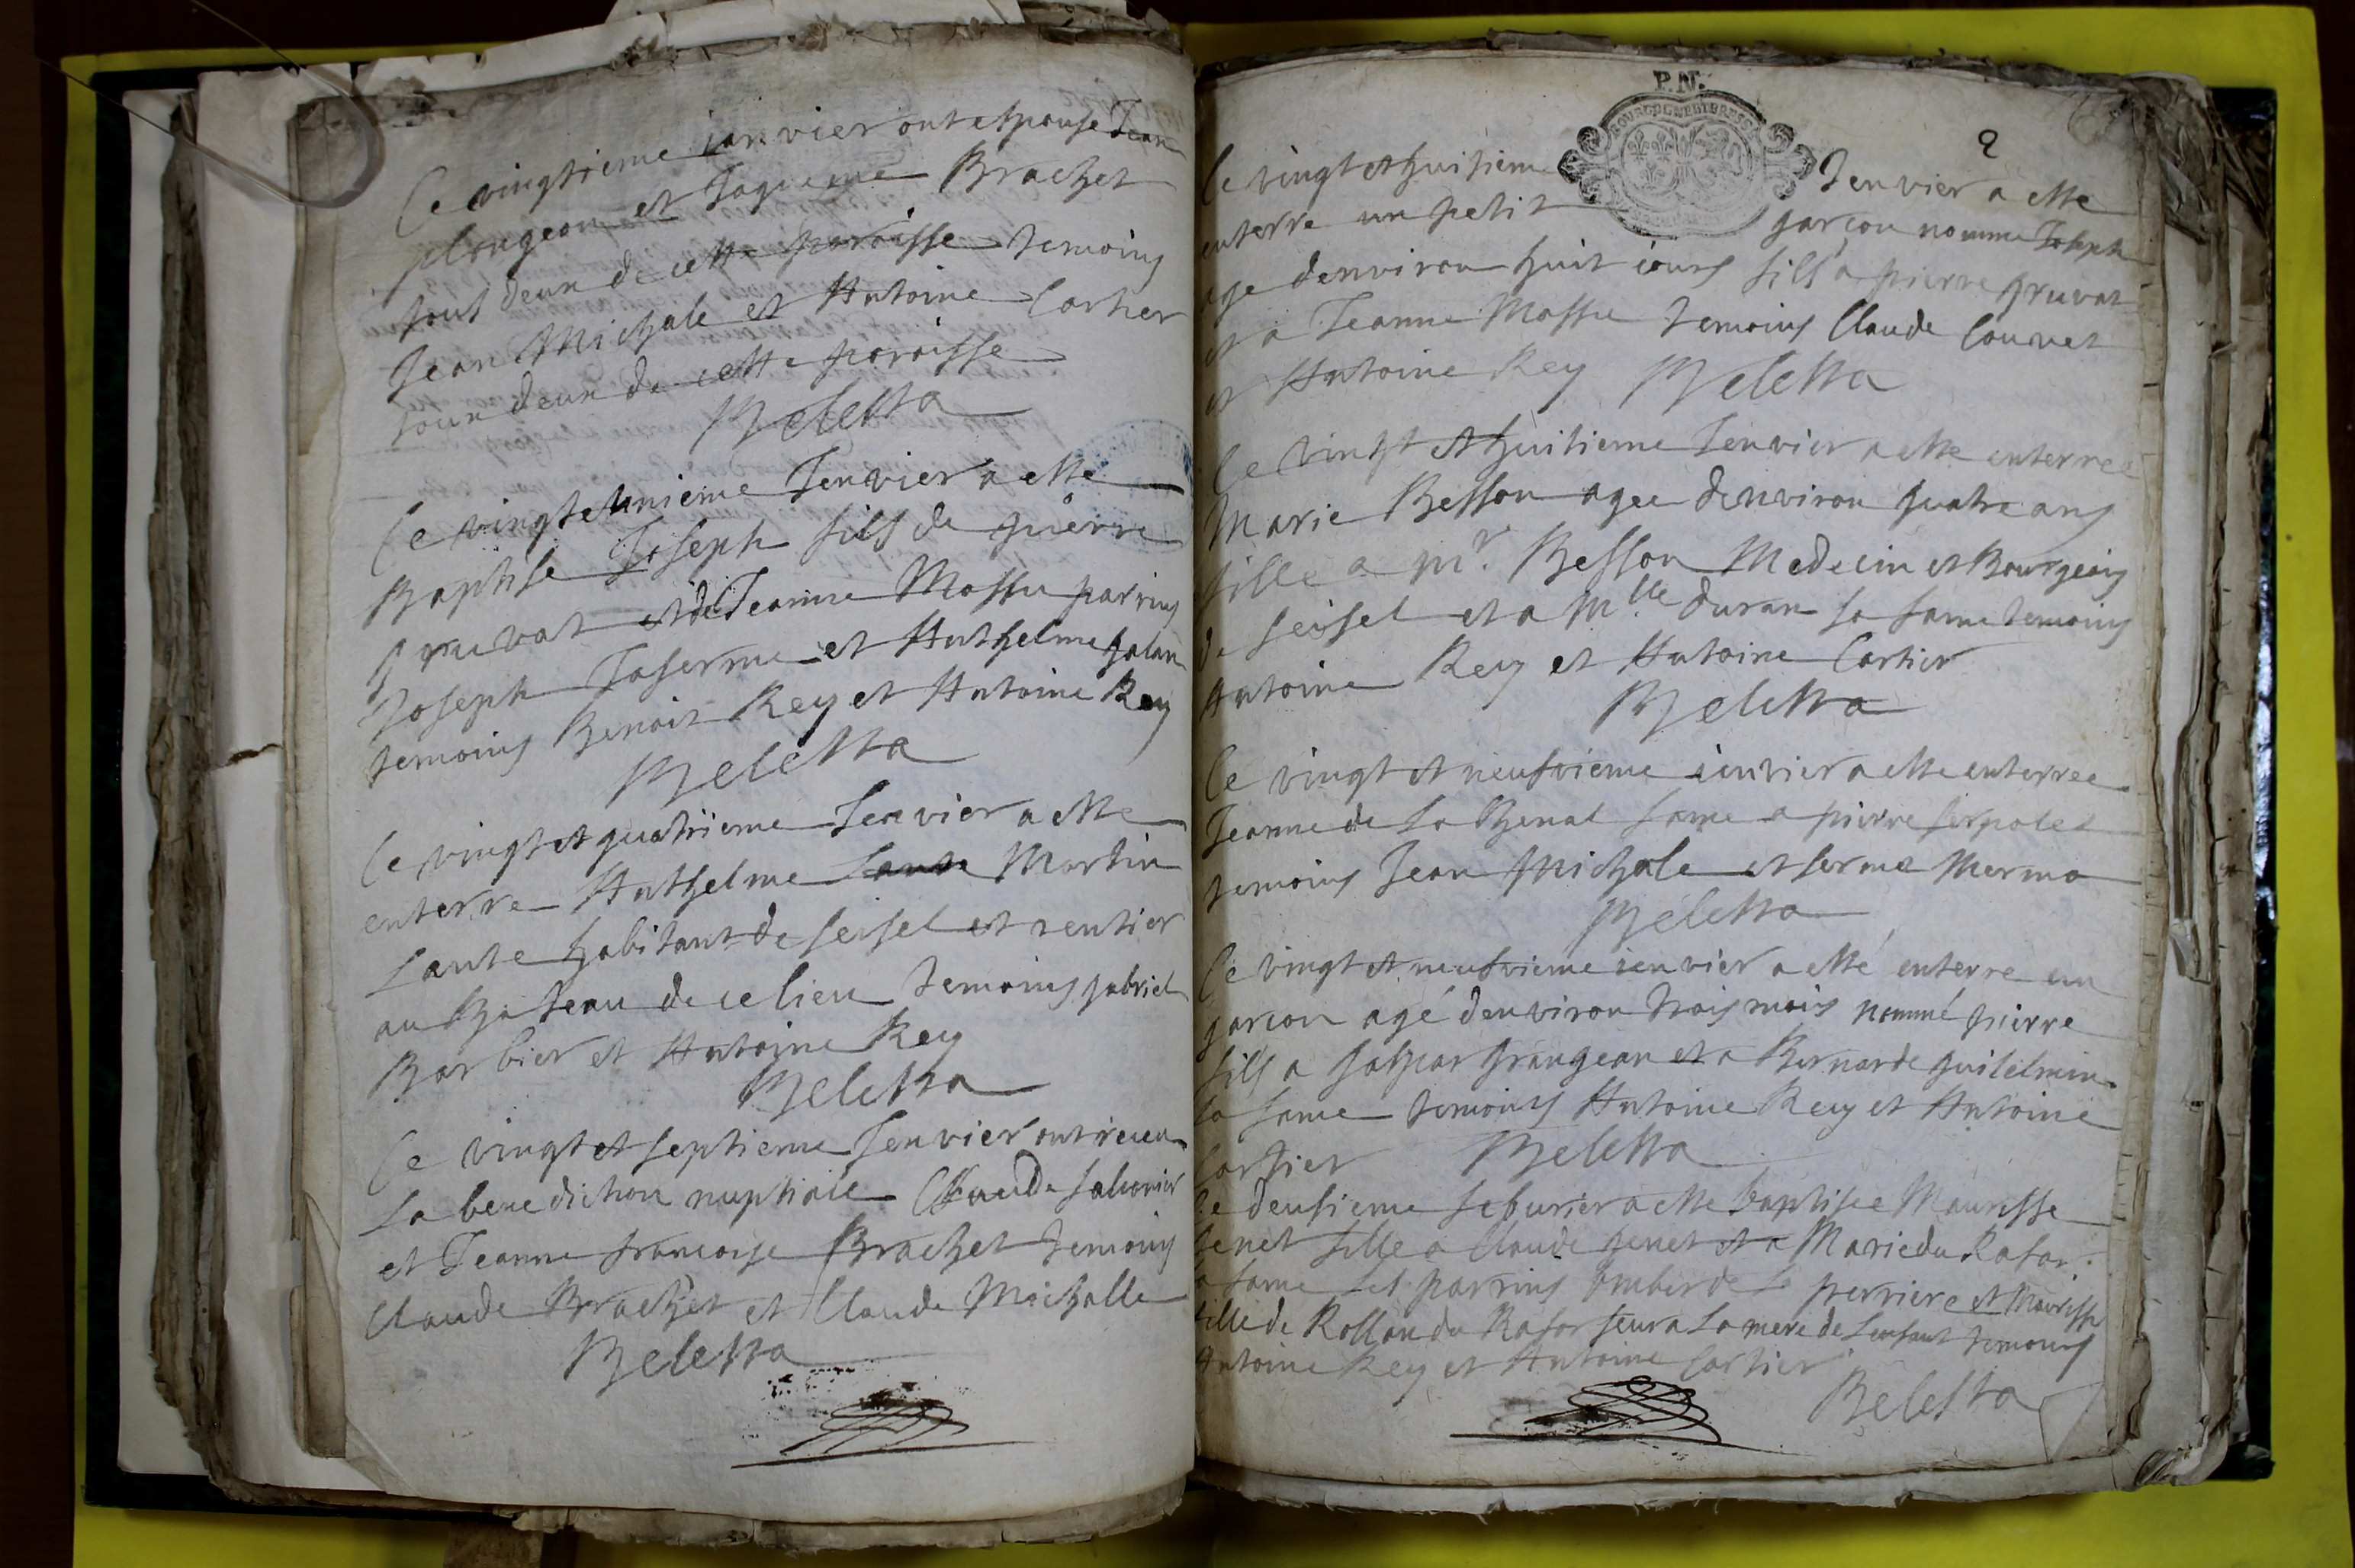 Le vingtieme janvier ont espouse Jean
plongeon et Jaqueme Brachet
tout deux de cette paroisse temoins
Jean Michale et Antoine Cartier
tour deux de cette paroisse
Beletta
Le vingt et unieme Jenvier a este
Baptise Joseph fils de pierre
gruvat et de Jeanne Massu parrins
Joseph Joserme et Anthelme galan
temoins Benoit Rey et Antoine Rey
Beletta
Le vingt et quatrieme Jenvier a este
enterre Anthelme Martin
Lante habitant de seisel et rentier
au Chateau de ce lieu temoins gabriel
Barbier et Antoine Rey
Beletta
Le vingt et septieme Jenvier ont receu
La benediction nuptiale Claude
et Jeanne francoise Brachet temoins
Claude Brachet et Claude Michalle
Beletta
P.N.
2
Le vingt et huitieme Jenvier a este
enterre un petit garçon nomme Joseph
age denviron huit iours fills a pierre gruvat
et a Jeanne Massu temoins Claude Couvet
et Antoine Rey Beletta
Le vingt et huitieme Jenvier a este enterree
Marie Besson agee denviron quatre ans
fille a mr. Besson Medecin et Bourgeois
de seisel et a mlle duran sa fame temoins
Antoine Rey et Antoine Cartier
Beletta
Le vingt et neufvieme ienvier a este enterree
Jeanne de La Chenal fame a pierre serpolet
temoins Jean Michale et ferme Mermo
Beletta
Le vingt et neufvieme ienvier a esté enterre un
garcon agé denviron trois mois nommé pierre
fills a gaspar grangean et a Bernarde guilelmin
sa fame temoins Antoine Rey et Antoine
Cartier Beletta
Le deusieme feburier a este baptisee Maurisse
Jenet fille a Claude Jenet et a Marie du Rafor
sa fame Les parrins Imber de La perriere et Maurisse
fille de Rollan du Rafor seur a La mere de Lenfant temoins
Antoine Rey et Antoine Cartier
Beletta